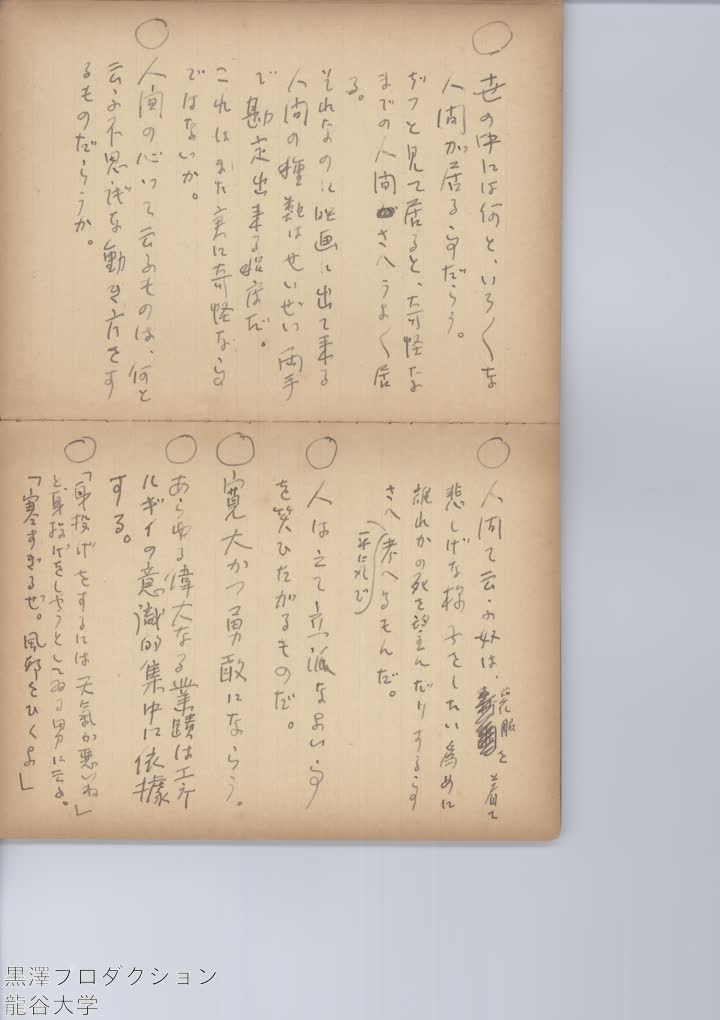 ○ 世の中には何と、いろ〱な
人間が居る事だらう。
ぢつと見て居ると、奇怪な
までの人間がさへうよ〱居
る。
それなのに映画に出て来る
人間の種類はせいぜい両手
で勘定出来る程度だ。
これはまた実に奇怪な事
ではないか。
○ 人間の心つて云ふものは、何と
云ふ不思議な動き方をす
るものだらうか。
○ 人間て云ふ奴は、喪服を着て
悲しげな様子をしたい為めに
誰れかの死を望んだりする事
さへ(平気で)考へるもんだ。
○ 人は立て立派なよい事
を笑ひたがるものだ。
○ 寛大かつ勇敢にならう。
○ あらゆる偉大なる業蹟はエネ
ルギイの意識的集中に依據
する。
○ 「身投げをするには天気が悪いね」
と身投げをしやうとしてゐる男に云ふ。
「寒すぎるぜ。風邪をひくよ」
黒澤プロダクション
龍谷大学